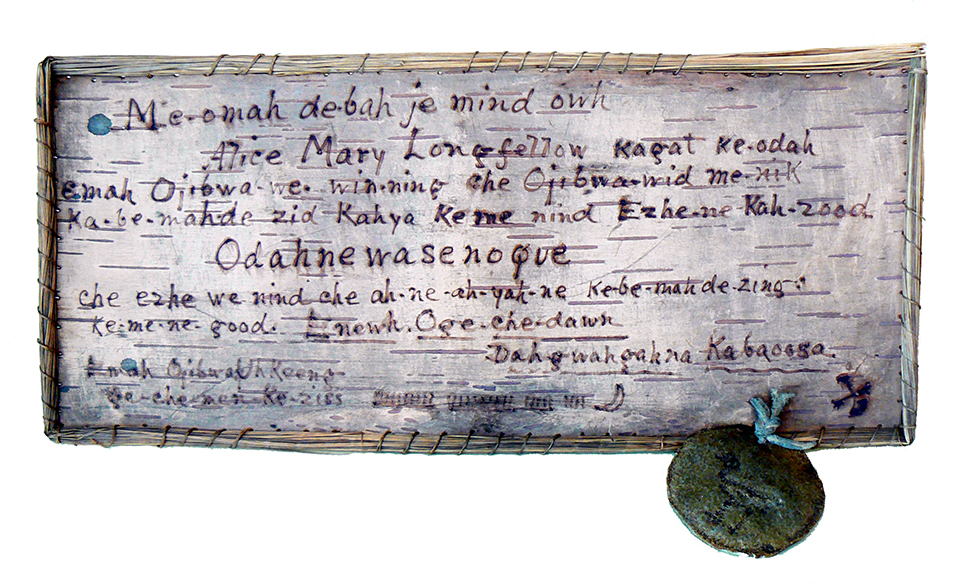 Me-omah de-bah je mind owh
Alice Mary Longfellow Kagat Ke-odah
emah Ojibwa-we-win-ning che Ojibwa-wid me-nik
Ka-be-mah-de zid Kahya Ke me nind Ezhe-ne-Kah-zood
Odahnewasenoqve
che ezhe we nind che ah-ne-ah-yah-ne Ke-be-mah de-zing:
Ke-me-ne-good. Enewh. Oge-che-dawn
Dahgwahgahna Kabaoosa.
Emah Ojibwa
Ge-che-men Ke-ziss